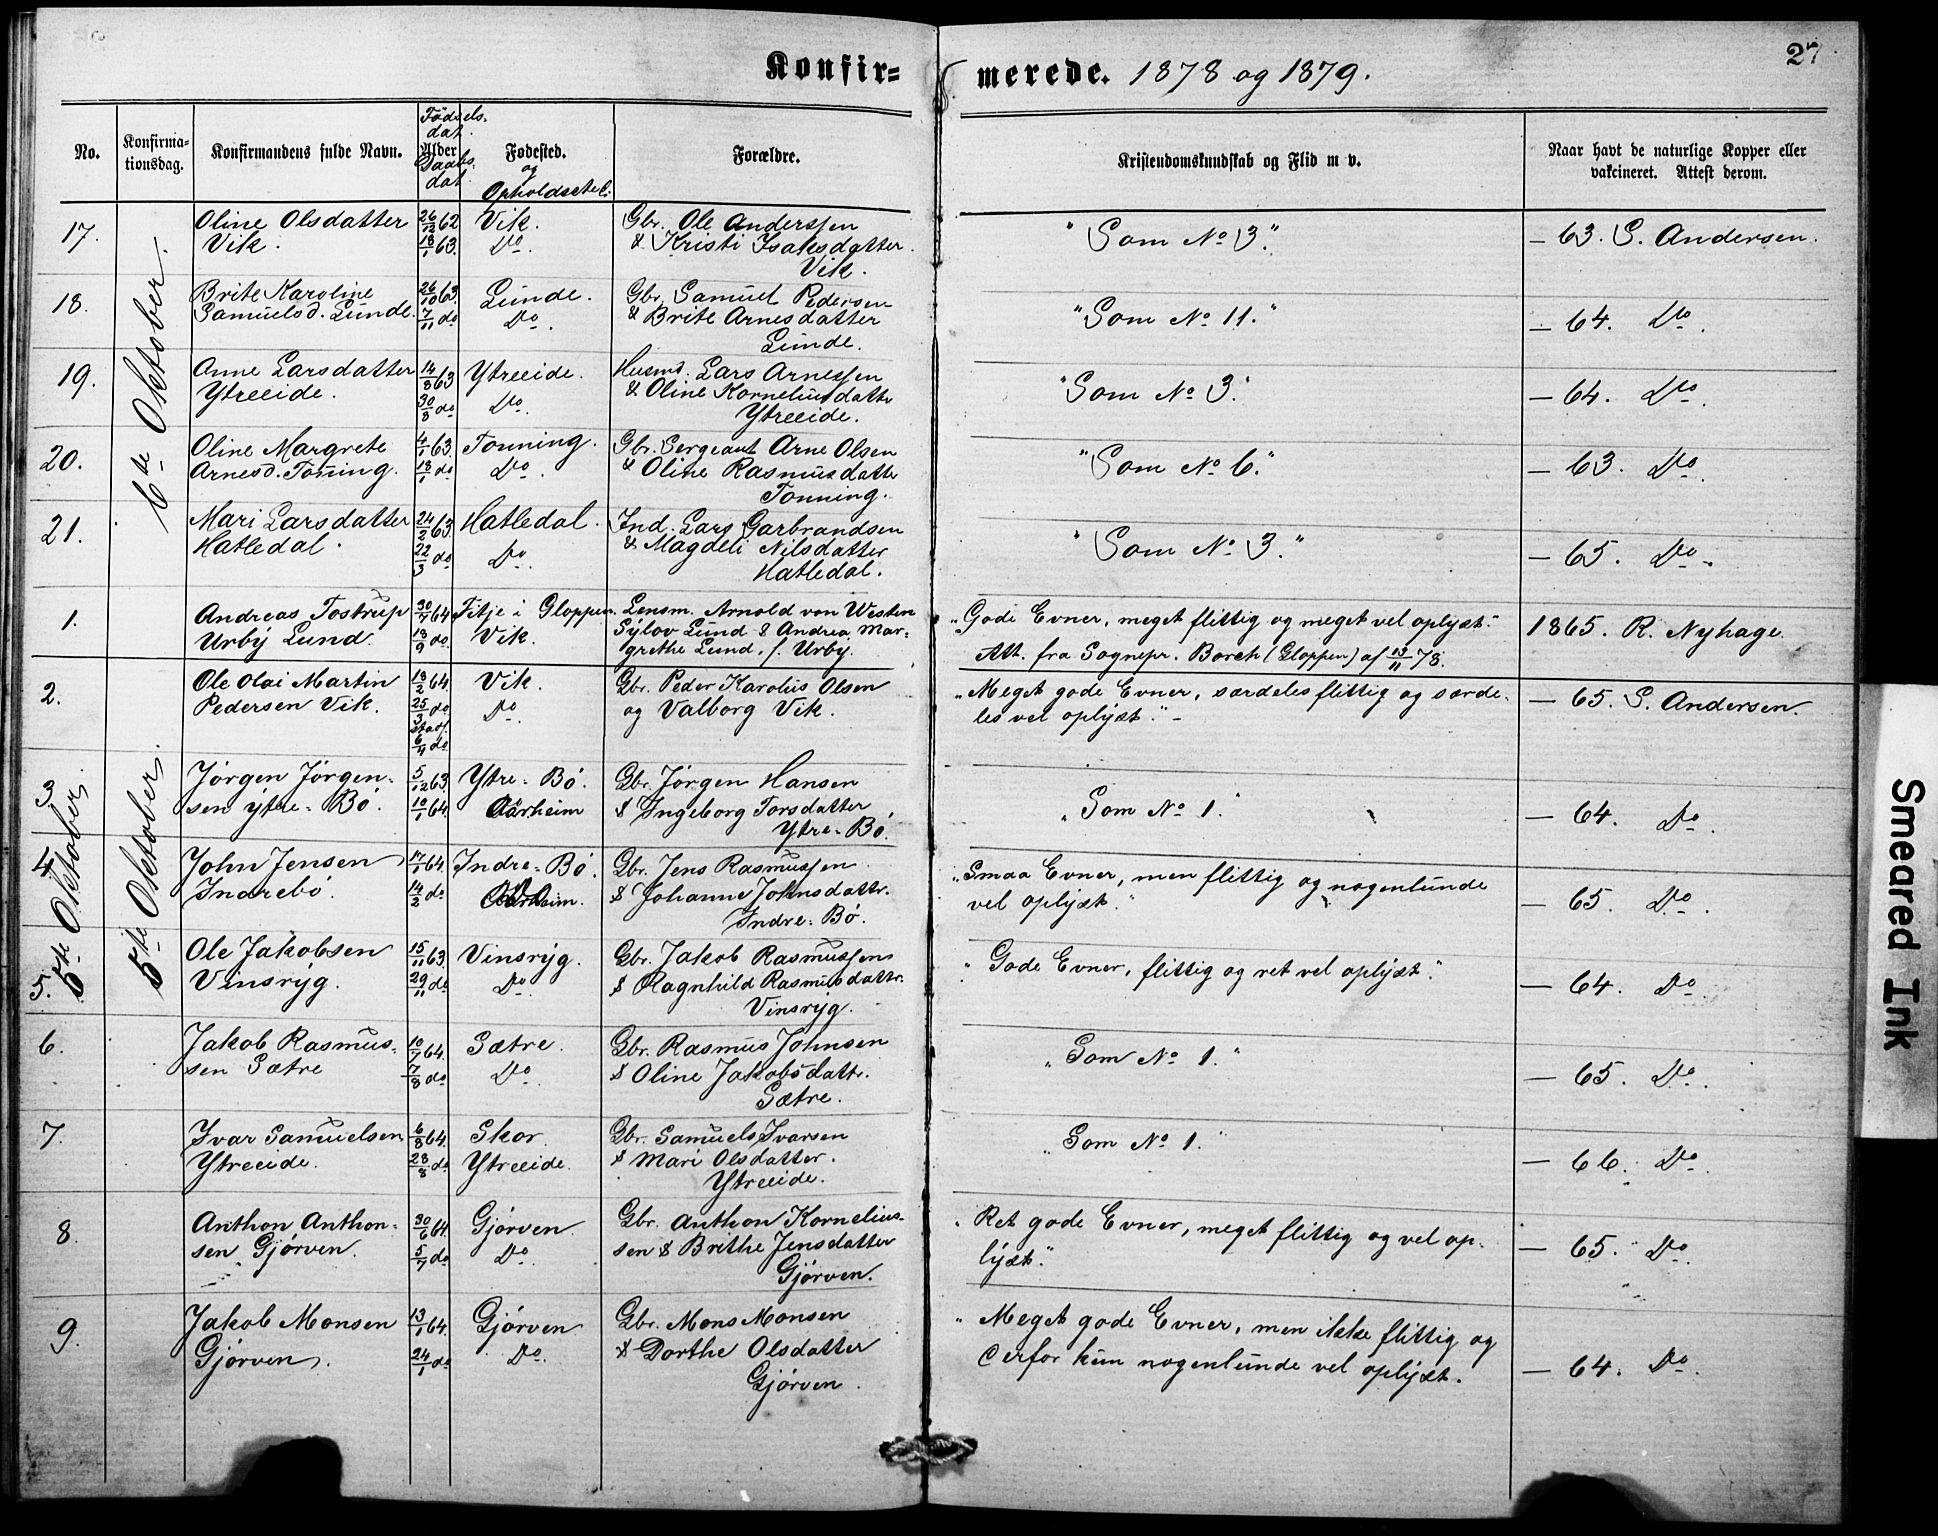 Konfir=
merede. 1878 og 1879.
27
No.
Konfirma-
tionsdag.
Konfirmandens fulde Navn.
Fødsels-
dat.
Alder
Daabs-
dat.
Fødested.
og
Opholdssted.
Forældre.
Kristendomskundskab og Flid m v.
Naar havt de naturlige Kopper eller
vakcineret. Attest derom.
6te Oktober.
17.
Oline Olsdatter
Vik.
26/12 62
18/1 63.
Vik.
Do.
Gbr. Ole Anderssen
& Kristi Isaksdatter.
Vik.
"Som No 3."
— 63. S. Andersen.
18.
Brite Karoline
Samuelsd. Lunde.
26/10 63.
7/11 do
Lunde.
Do.
Gbr. Samuel Pedersen
& Brite Arnesdatter
Lunde.
"Som No 11."
— 64. Do.
19.
Anne Larsdatter
Ytreeide.
14/8 63
30/8 do
Ytreeide.
Do.
Husmd. Lars Arnessen
& Oline Korneliusdatter
Ytreeide.
"Som No 3."
— 64. Do.
20.
Oline Margrete
Arnesd. Toning.
4/1 63.
18/1 do
Tonning.
Do.
Gbr. Sergeant Arne Olsen
& Oline Rasmusdatter
Tonning.
"Som No 6."
— 63. Do.
21.
Mari Larsdatter
Hatledal.
24/2 63.
22/3 do
Hatledal.
Do.
Ind. Lars Garbrandsen
& Magdeli Nilsdatter
Hatledal.
"Som No 3."
— 65. Do.
1.
Andreas Tostrup
Urby Lund.
30/7 64
18/9 do
Fitje i Gloppen.
Vik.
Lensm. Arnold von Westen
Sylov Lund & Andrea Mar-
grethe Lund, f. Urby.
"Gode Evner, meget flittig og meget vel oplyst."
Att. fra Sognepr. Borch (Gloppen) af 13/11 78.
1865. R. Nyhage.
5te Oktober.
5te Oktober.
2.
Ole Olai Martin
Pedersen Vik.
18/2 64.
25/3 do
Stadf.
6/4 do
Vik.
Do.
Gbr. Peder Karolius Olsen
og Valborg Vik.
"Meget gode Evner, særdeles flittig og særde-
les vel oplyst."
— 65. S. Andersen.
3
Jørgen Jørgen-
sen ytre-Bø.
5/12 63.
10/1 64.
Ytre-Bø.
Aarheim
Gbr. Jørgen Hansen
& Ingeborg Torsdatter
Ytre-Bø.
"Som No 1."
— 64. Do.
4.
John Jensen
Indrebø.
17/1 64.
14/2 do
Indre-Bø.
Aarheim.
Gbr. Jens Rasmussen
& Johanne Johnsdattr.
Indre-Bø.
"Smaa Evner, men flittig og nogenlunde
vel oplyst."
— 65. Do.
5.
Ole Jakobsen
Vinsryg.
15/11 63.
29/11 do
Vinsryg.
Do.
Gbr. Jakob Rasmussen
& Ragnhild Rasmusdattr.
Vinsryg.
"Gode Evner, flittig og ret vel oplyst."
— 64. Do.
6.
Jakob Rasmus-
sen Sætre
10/7 64.
7/8 do
Sætre.
Do.
Gbr. Rasmus Johnsen
& Oline Jakobsdattr.
Sætre.
"Som No 1."
— 65. Do.
7.
Ivar Samuelsen
Ytreeide.
6/8 64.
28/8 do
Skor.
Ytreeide.
Gbr. Samuels Ivarsen
& Mari Olsdatter.
Ytreeide.
"Som No 1."
— 66. Do.
8.
Anthon Anthon-
sen Gjørven.
30/6 64.
5/7 do
Gjørven
Do.
Gbr. Anthon Kornelius-
sen & Brithe Jensdatter
Gjørven.
"Ret gode Evner, meget flittig og vel op-
lyst."
— 65. Do.
9.
Jakob Monsen
Gjørven.
13/1 64.
24/1 do
Gjørven
Do.
Gbr. Mons Monsen
& Dorthe Olsdatter
Gjørven.
"Meget gode Evner, men ikke flittig og
derfor kun nogenlunde vel oplyst.
— 64. Do.
Smeared Ink